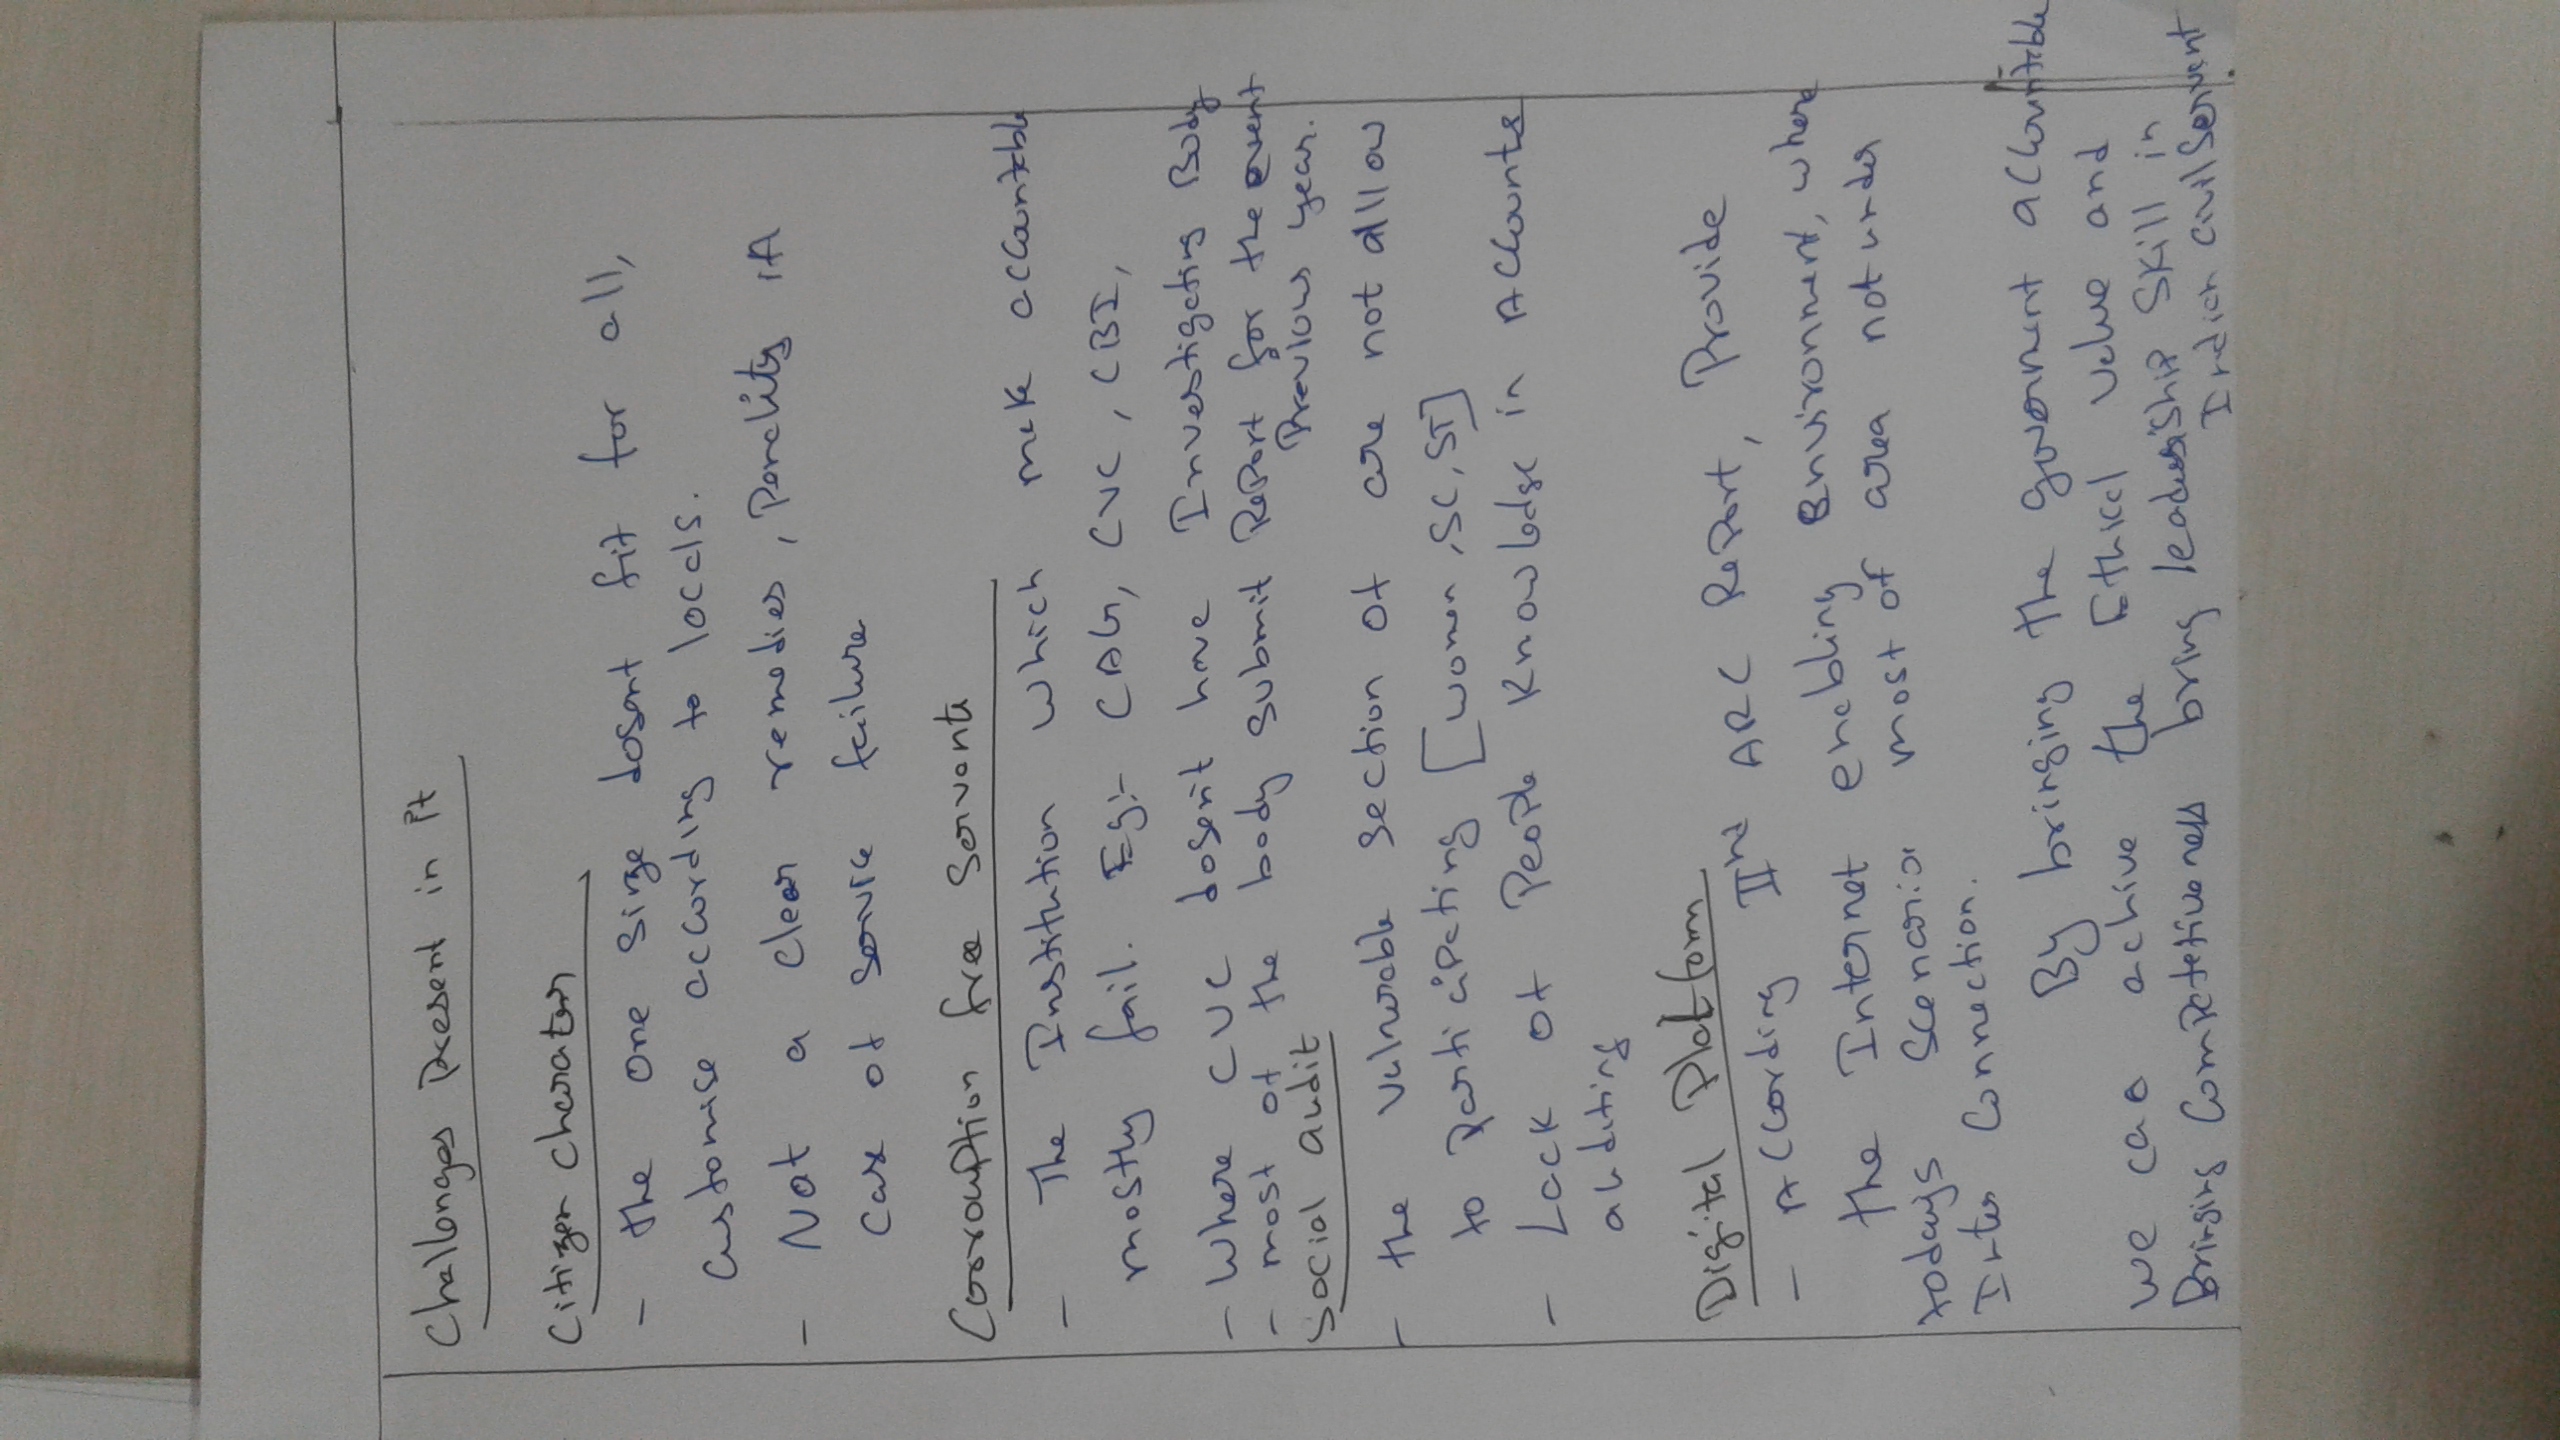 Challenges Present in it
Citizen charater
- the one size dosent fit for all,
customise according to locals.
- Not a clear remedies, Penality in
case of service failure
Corrouption free Servants
- The Institution which mak accountable
mostly fail. Eg:- CAG, CVC, CBI,
- Where CVC dosent have Investigating Body
- most of the body submit Report for the event
Previous year.
Social audit
- the vulnerable section of are not allow
to participating [women, SC, ST]
- Lack of People Knowledge in Accounts
auditing
Digital Platform
- According IInd ARC Report, Provide
the Internet enabling Environment, where
todays Scenario most of area not under
Inter Connection.
By bringing the government accountible
we can achive the Ethical value and
Bringing Competetiveness bring leadership Skill in
Indian civil Servent